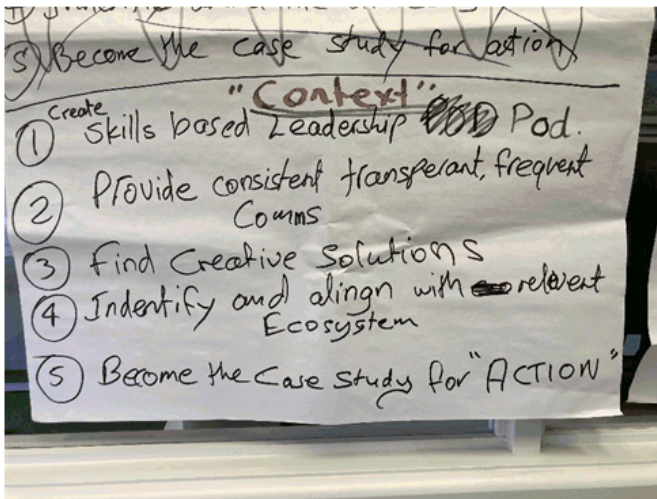 5 Become the case study for action
"Context"
Create
1 Skills based Leadership Pod.
2 Provide consistent transperant, frequent
Comms
3 find Creative Solutions
4 Indentify and alingn with relevent
Ecosystem
5 Become the Case Study for "ACTION"